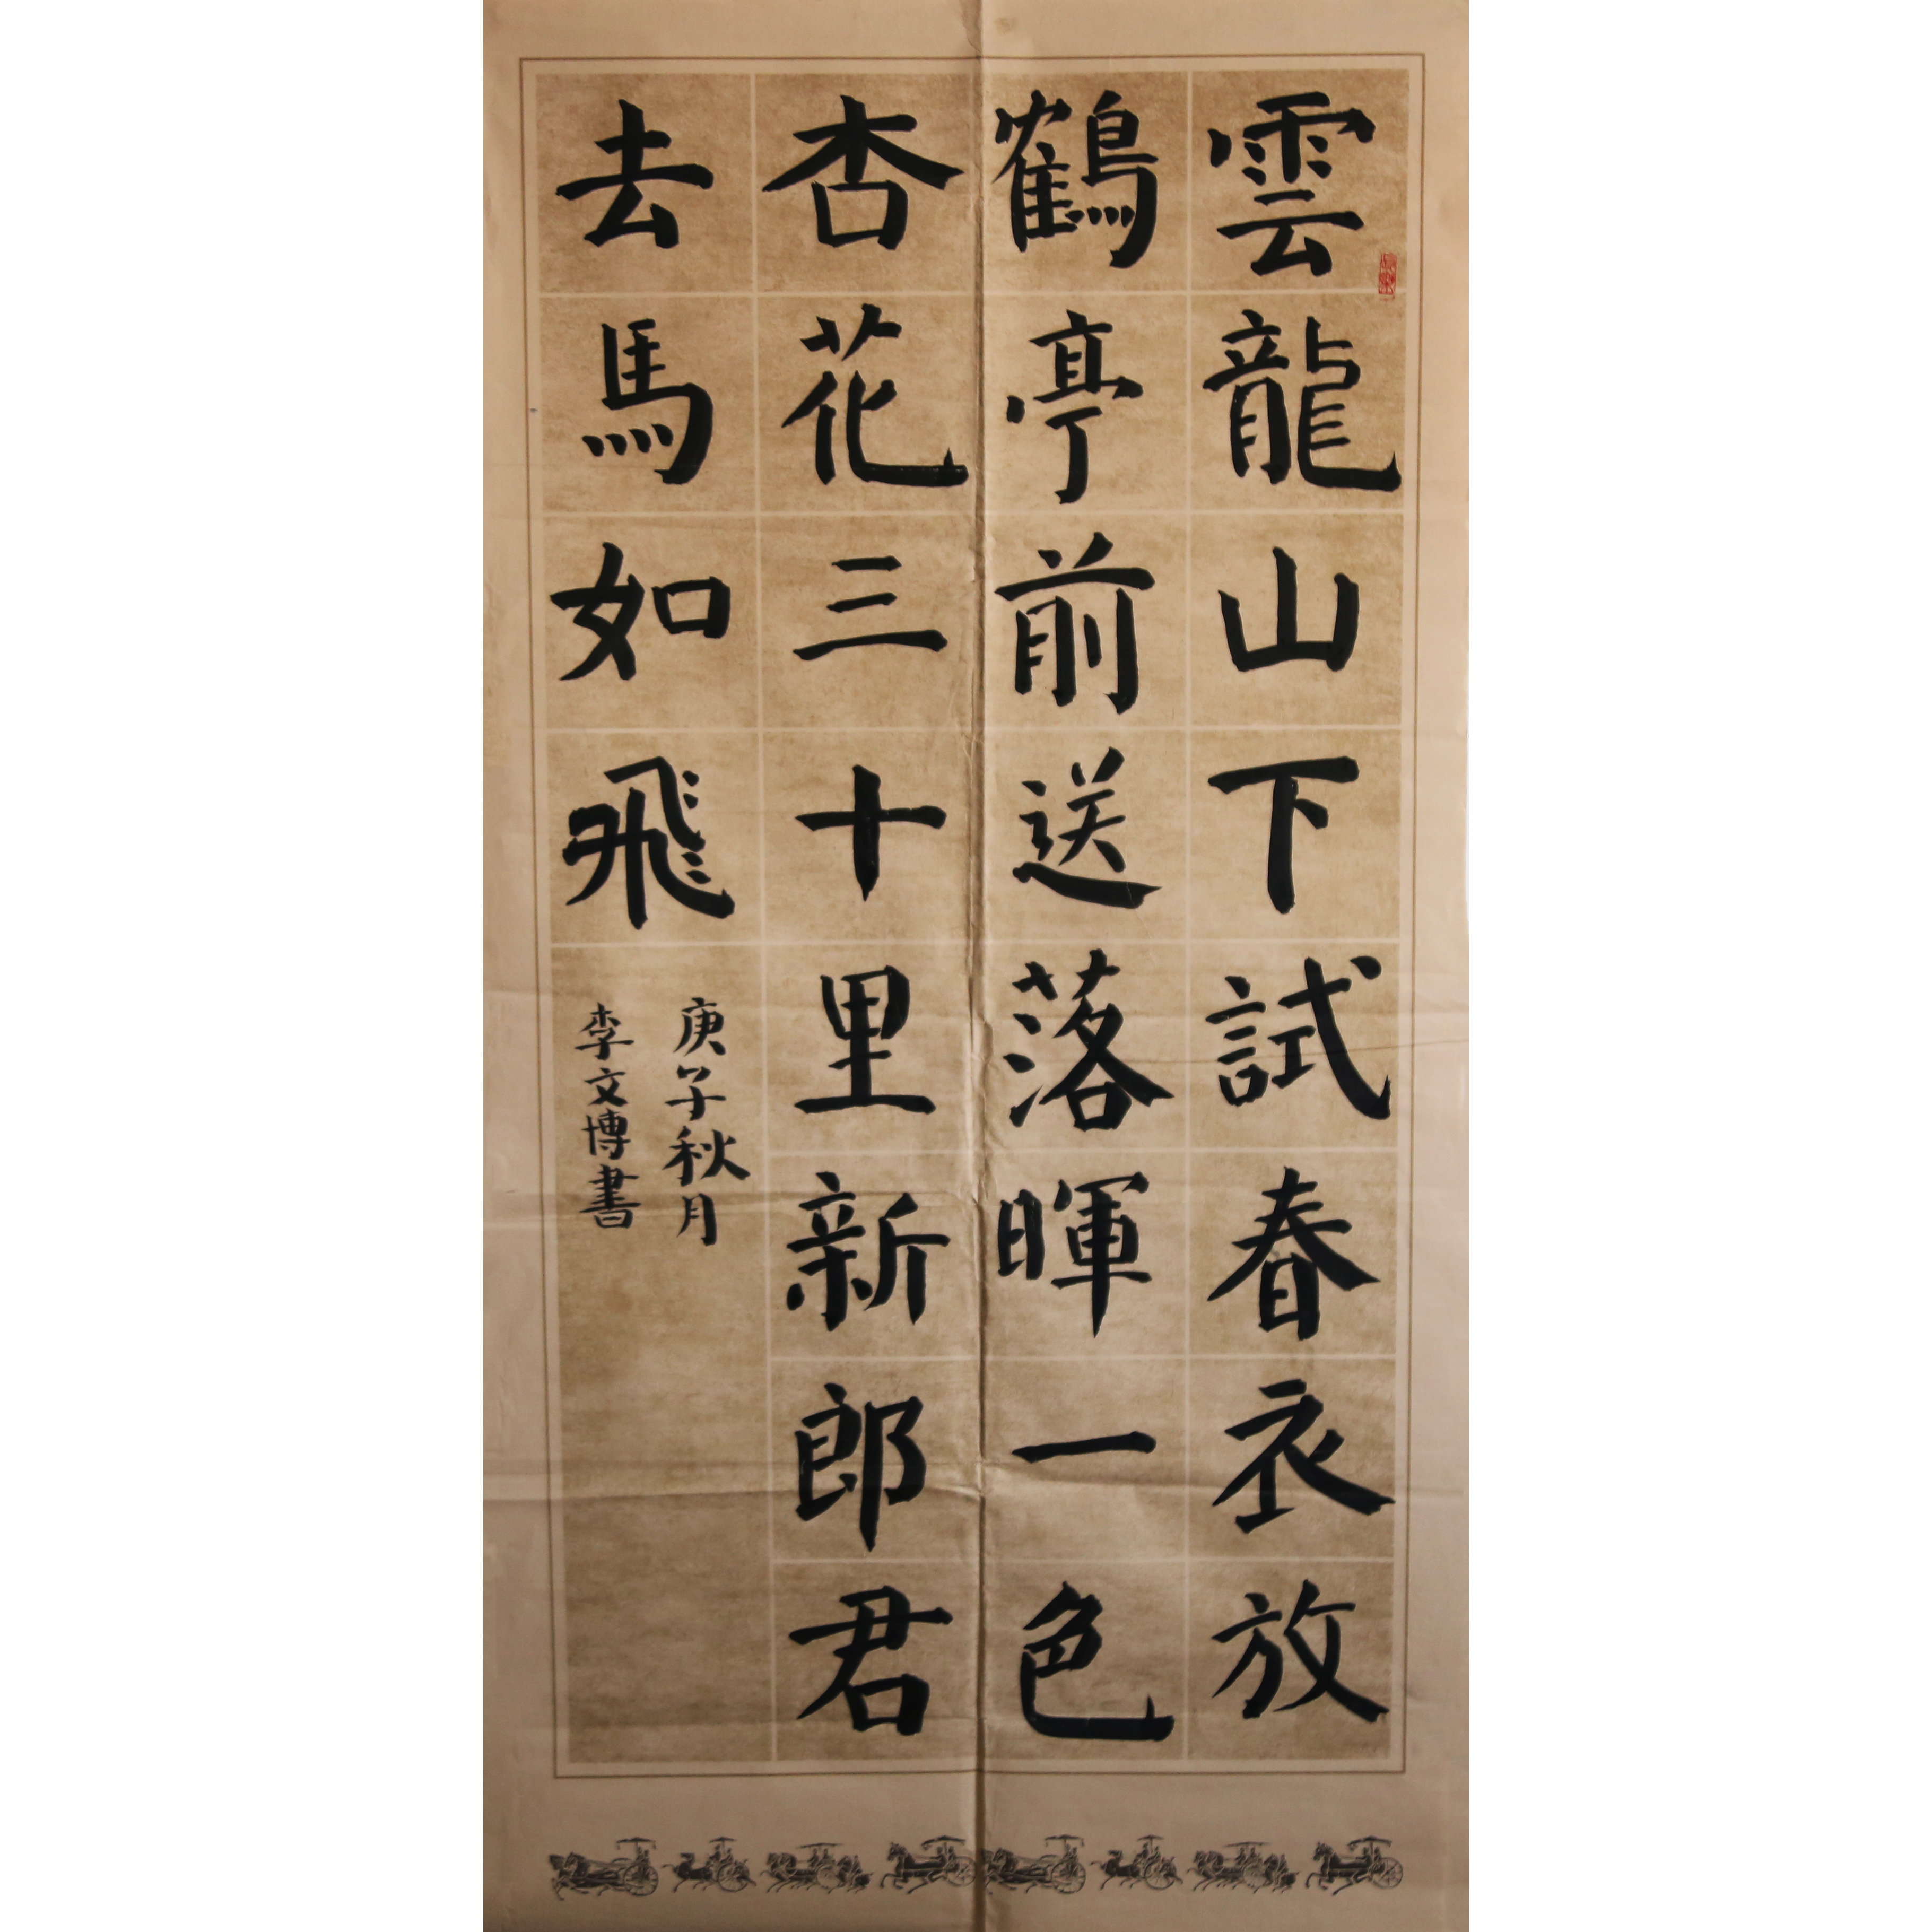 雲龍山下試春衣放
鶴亭前送落暉一色
杏花三十里新郎君
去馬如飛
庚子秋月
李文博書